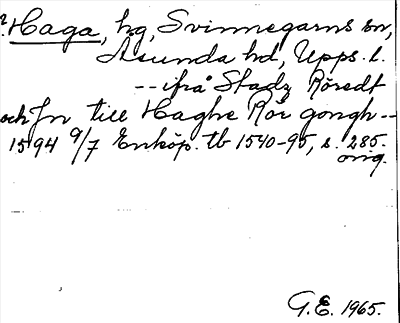 Haga, hg, Svinnegarns sn,
Åsunda hd, Upps. l.
-- ifrå Stadz Röredt
och Jn till Haghe Rör gongh --
1594 9/7 Enköp. tb 1540-95, s. 285.
orig.
G.E. 1965.